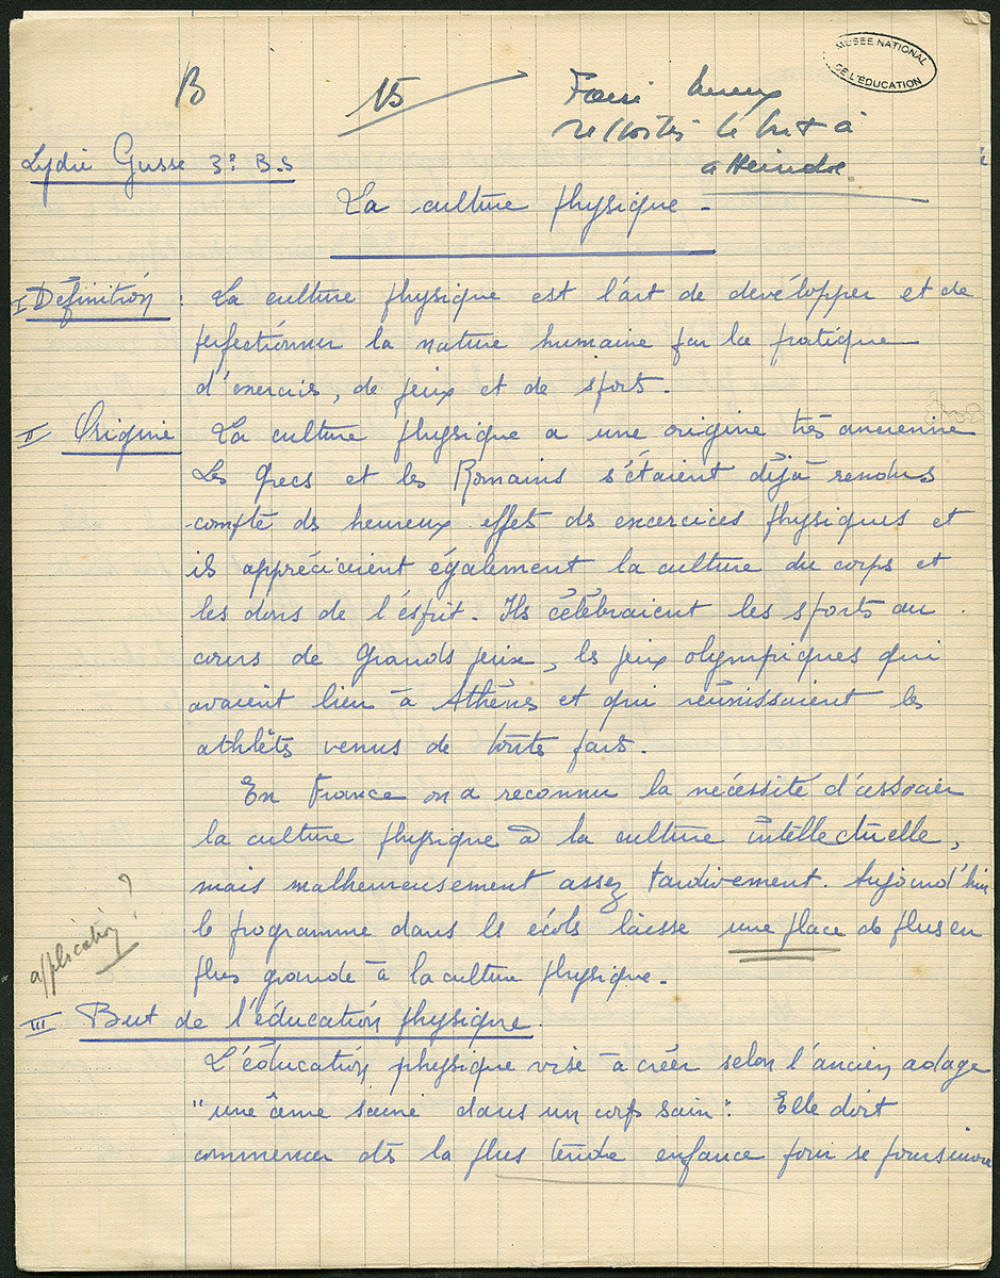 MUSÉE NATIONAL
DE L'ÉDUCATION
B
15
Faire mieux
ressortir le but à
atteindre.
Lydie Gusse 3e B.S
La culture physique -
I Définition : La culture physique est l'art de devélopper et de
perfectionner la nature humaine par la pratique
d'exercis, de jeux et de sport.
II Origine La culture physique a une origine très ancienne
Les Grecs et les Romains s'étaient déjà rendus
compte des heureux effets des excercices physiques et
ils appréciaient également la culture du corps et
les dons de l'ésprit. Ils célébraient les sports au
cours de Grands jeux, les jeux olympiques qui
avaient lieu à Athènes et qui réunissaient les
athlètes venus de toutes parts.
En France on a reconnu la nécéssité d'associer
la culture physique à la culture intellectuelle,
mais malheureusement assez tardivement. Aujourd'hui
le programme dans les écoles laisse une place de plus en
application ?
plus grande à la culture physique.
III But de l'éducation physique.
L'éducation physique vise à créer selon l'ancien adage
"une âme saine dans un corps sain". Elle doit
commencer dès la plus tendre enfance pour se poursuivre